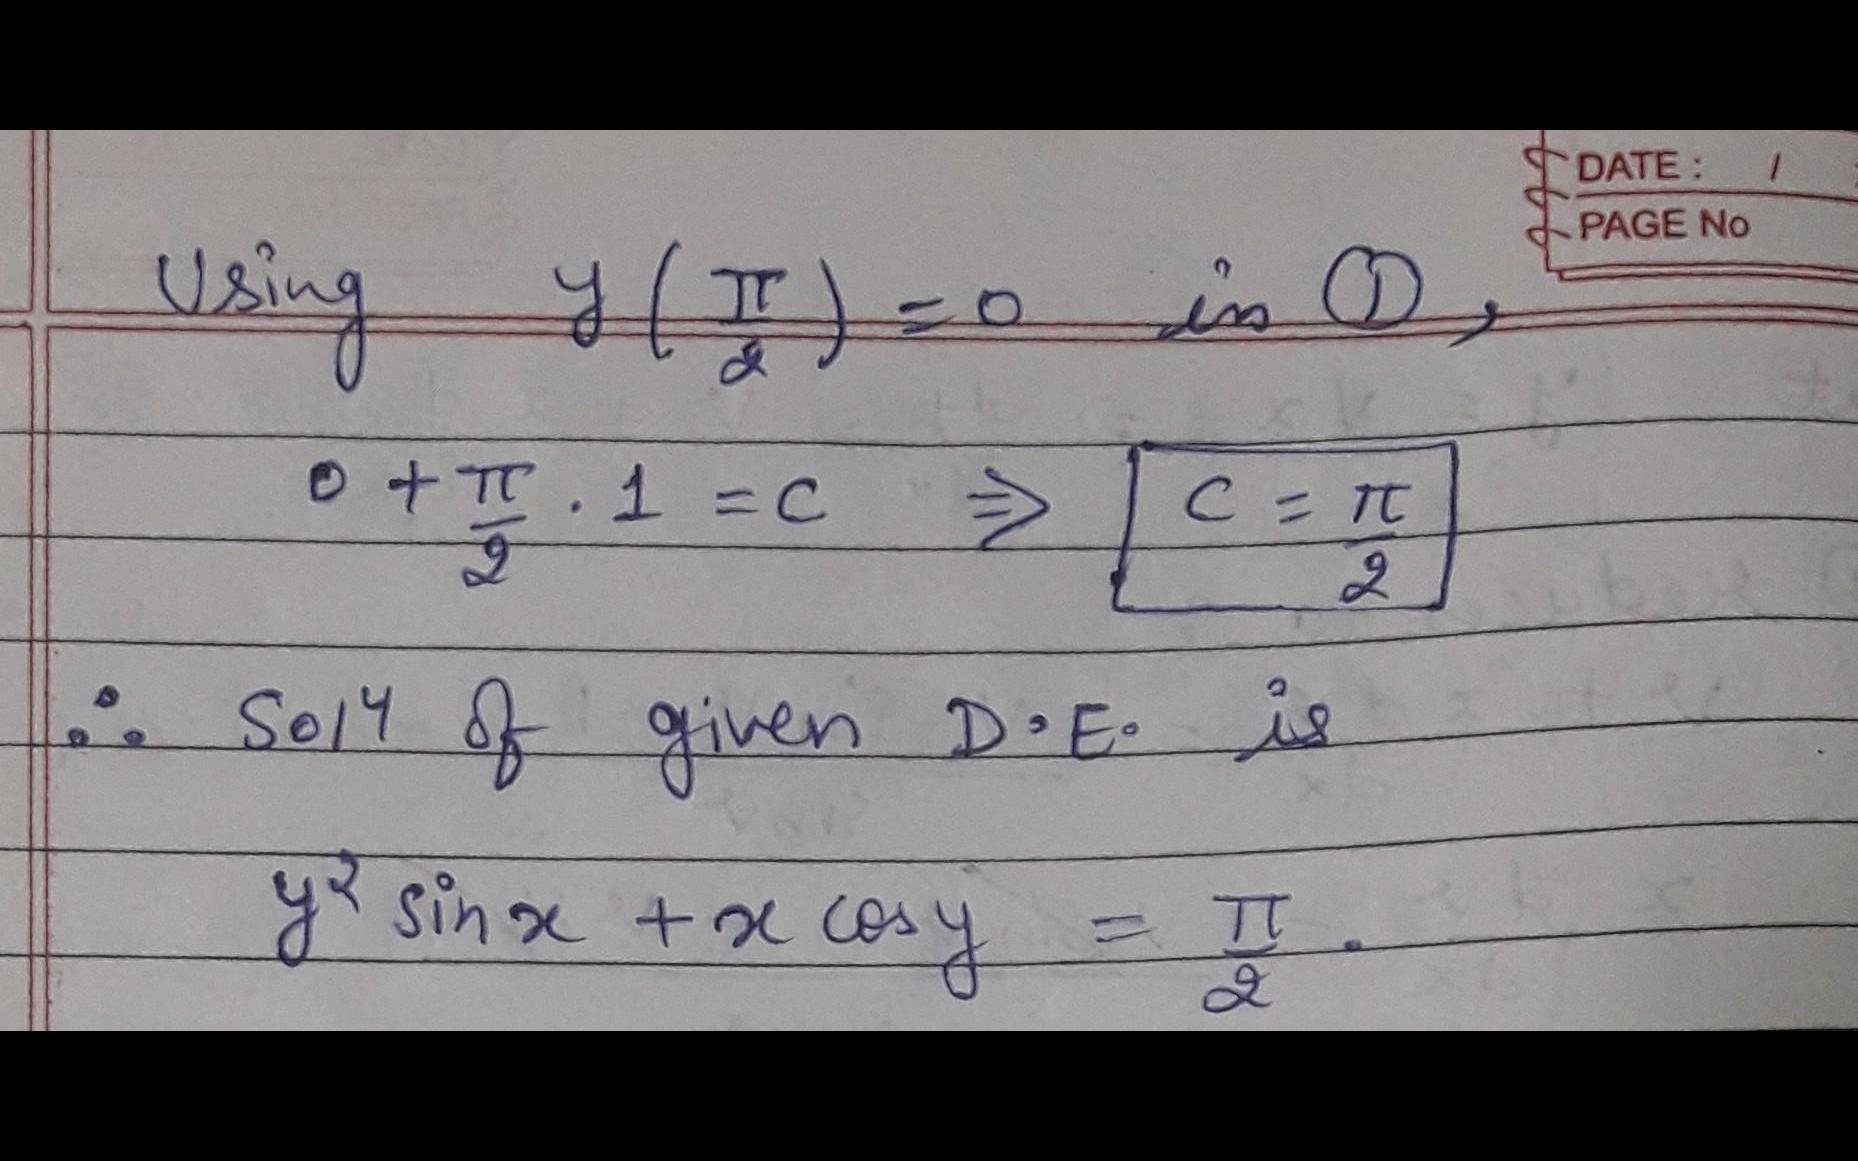 DATE: /
PAGE No
Using y(π/2) = 0 in ①,
0 + π/2 . 1 = C ⇒ C = π/2
∴ Sol4 of given D.E. is
y² sin x + x cos y = π/2.